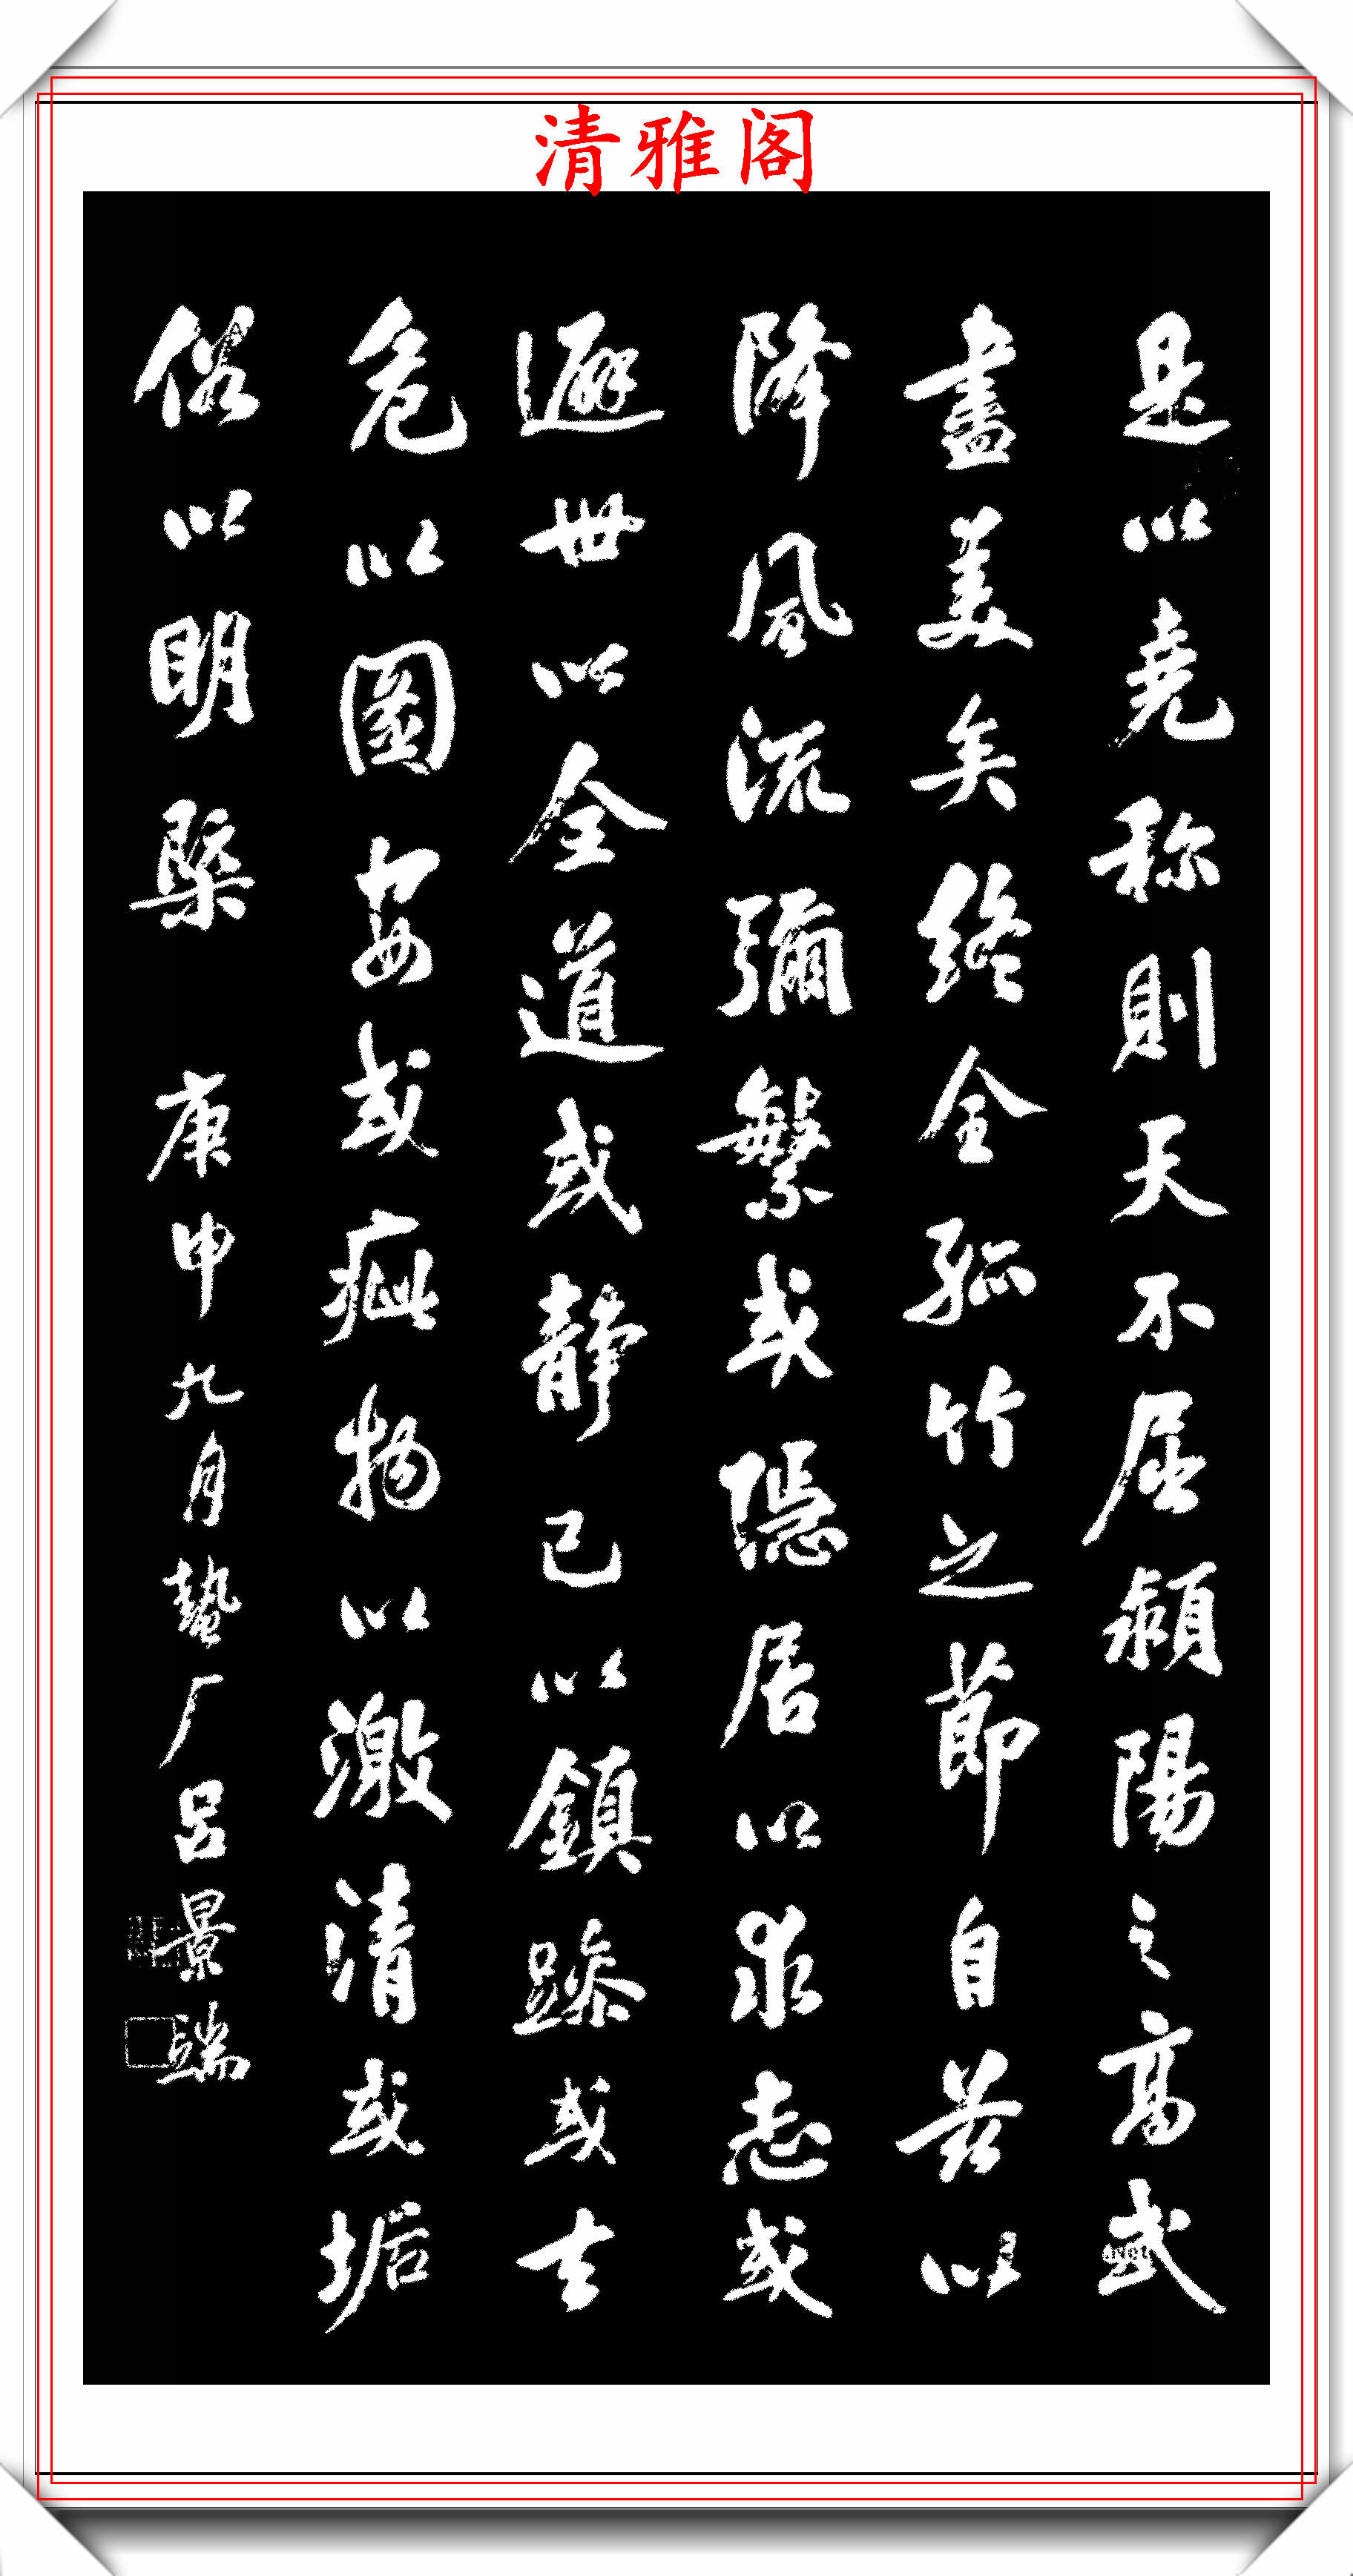 清雅阁
是以堯称則天不屈潁陽之高武
盡美矣終全孤竹之節自茲以
降風流彌繁或隱居以求志或
迴避世以全道或静己以鎮躁或去
危以圖安或疵物以激清或垢
俗以明槩
庚申九月蟄厂吕景端